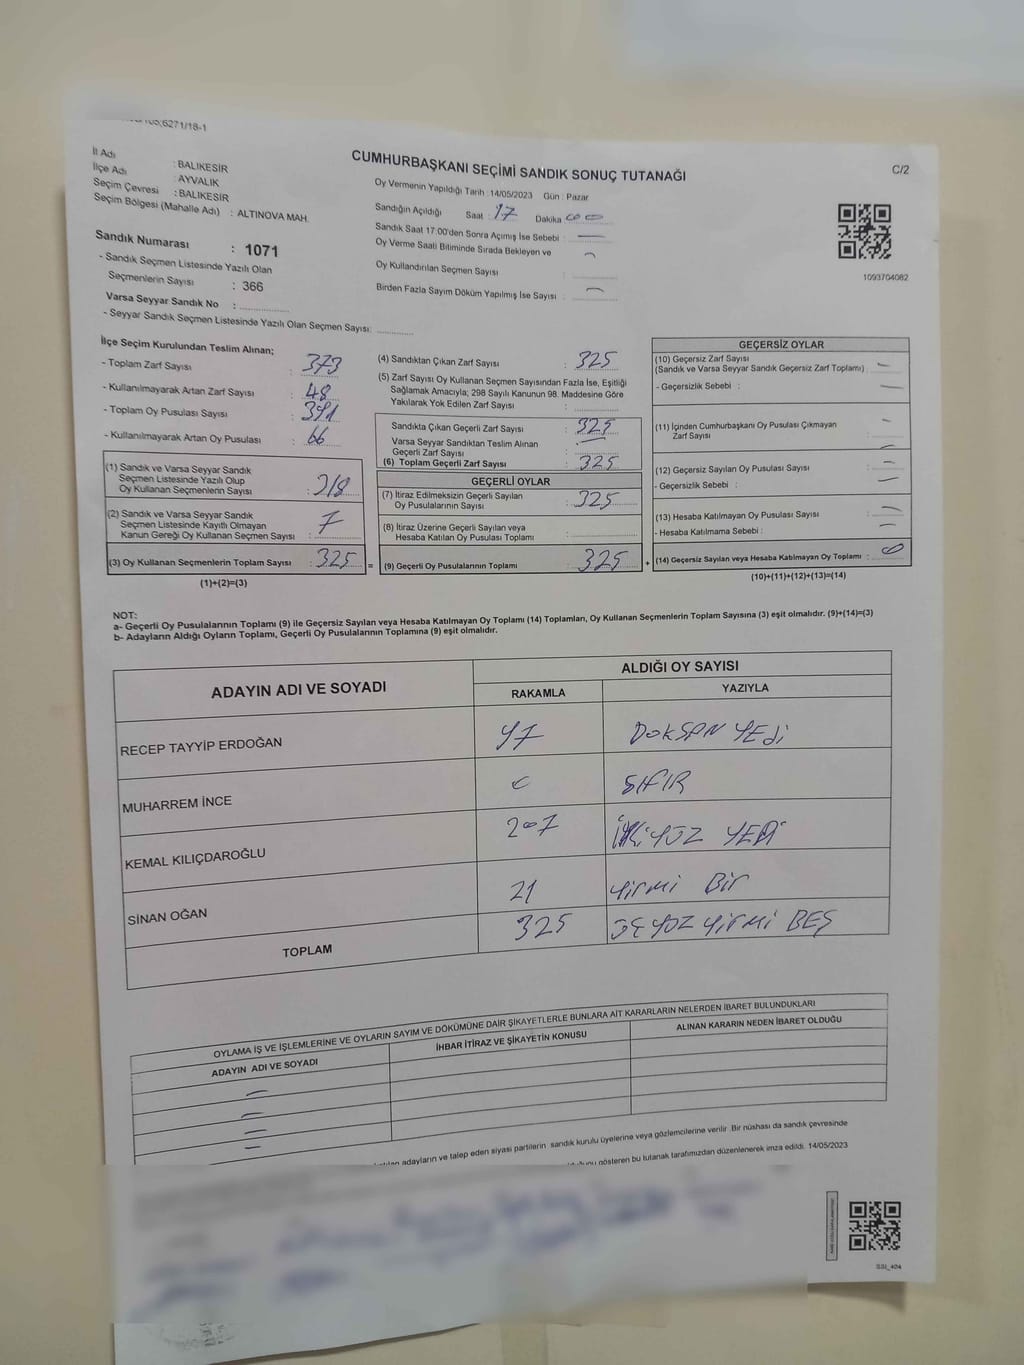 CUMHURBAŞKANI SEÇİMİ SANDIK SONUÇ TUTANAĞI
C/2
İl Adı : BALIKESİR
İlçe Adı : AYVALIK
Seçim Çevresi : BALIKESİR
Seçim Bölgesi (Mahalle Adı) : ALTINOVA MAH.
Sandık Numarası : 1071
- Sandık Seçmen Listesinde Yazılı Olan
Seçmenlerin Sayısı : 366
Varsa Seyyar Sandık No :
- Seyyar Sandık Seçmen Listesinde Yazılı Olan Seçmen Sayısı:
Oy Vermenin Yapıldığı Tarih : 14/05/2023 Gün : Pazar
Sandığın Açıldığı Saat : 17 Dakika 00
Sandık Saat 17:00'den Sonra Açılmış İse Sebebi : —
Oy Verme Saati Bitiminde Sırada Bekleyen ve
Oy Kullandırılan Seçmen Sayısı :
Birden Fazla Sayım Döküm Yapılmış İse Sayısı : —
1093704082
İlçe Seçim Kurulundan Teslim Alınan;
- Toplam Zarf Sayısı : 373
- Kullanılmayarak Artan Zarf Sayısı : 48
- Toplam Oy Pusulası Sayısı : 391
- Kullanılmayarak Artan Oy Pusulası : 66
(1) Sandık ve Varsa Seyyar Sandık
Seçmen Listesinde Yazılı Olup
Oy Kullanan Seçmenlerin Sayısı : 318
(2) Sandık ve Varsa Seyyar Sandık
Seçmen Listesinde Kayıtlı Olmayan
Kanun Gereği Oy Kullanan Seçmen Sayısı : 7
(3) Oy Kullanan Seçmenlerin Toplam Sayısı : 325
(1)+(2)=(3)
(4) Sandıktan Çıkan Zarf Sayısı : 325
(5) Zarf Sayısı Oy Kullanan Seçmen Sayısından Fazla İse, Eşitliği
Sağlamak Amacıyla; 298 Sayılı Kanunun 98. Maddesine Göre
Yakılarak Yok Edilen Zarf Sayısı :
Sandıkta Çıkan Geçerli Zarf Sayısı : 325
Varsa Seyyar Sandıktan Teslim Alınan
Geçerli Zarf Sayısı : —
(6) Toplam Geçerli Zarf Sayısı : 325
GEÇERLİ OYLAR
(7) İtiraz Edilmeksizin Geçerli Sayılan
Oy Pusulalarının Sayısı : 325
(8) İtiraz Üzerine Geçerli Sayılan veya
Hesaba Katılan Oy Pusulası Toplamı :
= (9) Geçerli Oy Pusulalarının Toplamı : 325 +
GEÇERSİZ OYLAR
(10) Geçersiz Zarf Sayısı
(Sandık ve Varsa Seyyar Sandık Geçersiz Zarf Toplamı) : —
- Geçersizlik Sebebi : —
(11) İçinden Cumhurbaşkanı Oy Pusulası Çıkmayan
Zarf Sayısı : —
(12) Geçersiz Sayılan Oy Pusulası Sayısı : —
- Geçersizlik Sebebi : —
(13) Hesaba Katılmayan Oy Pusulası Sayısı : —
- Hesaba Katılmama Sebebi : —
(14) Geçersiz Sayılan veya Hesaba Katılmayan Oy Toplamı : 0
(10)+(11)+(12)+(13)=(14)
NOT:
a- Geçerli Oy Pusulalarının Toplamı (9) ile Geçersiz Sayılan veya Hesaba Katılmayan Oy Toplamı (14) Toplamları, Oy Kullanan Seçmenlerin Toplam Sayısına (3) eşit olmalıdır. (9)+(14)=(3)
b- Adayların Aldığı Oyların Toplamı, Geçerli Oy Pusulalarının Toplamına (9) eşit olmalıdır.
ADAYIN ADI VE SOYADI ALDIĞI OY SAYISI
RAKAMLA YAZIYLA
RECEP TAYYİP ERDOĞAN 97 DOKSAN YEDİ
MUHARREM İNCE 0 SIFIR
KEMAL KILIÇDAROĞLU 207 İKİYÜZ YEDİ
SİNAN OĞAN 21 YİRMİ BİR
TOPLAM 325 ÜÇ YÜZ YİRMİ BEŞ
OYLAMA İŞ VE İŞLEMLERİNE VE OYLARIN SAYIM VE DÖKÜMÜNE DAİR ŞİKAYETLERLE BUNLARA AİT KARARLARIN NELERDEN İBARET BULUNDUKLARI
ADAYIN ADI VE SOYADI İHBAR İTİRAZ VE ŞİKAYETİN KONUSU ALINAN KARARIN NEDEN İBARET OLDUĞU
adayların ve talep eden siyasi partilerin sandık kurulu üyelerine veya gözlemcilerine verilir. Bir nüshası da sandık çevresinde
gösteren bu tutanak tarafımızdan düzenlenerek imza edildi. 14/05/2023